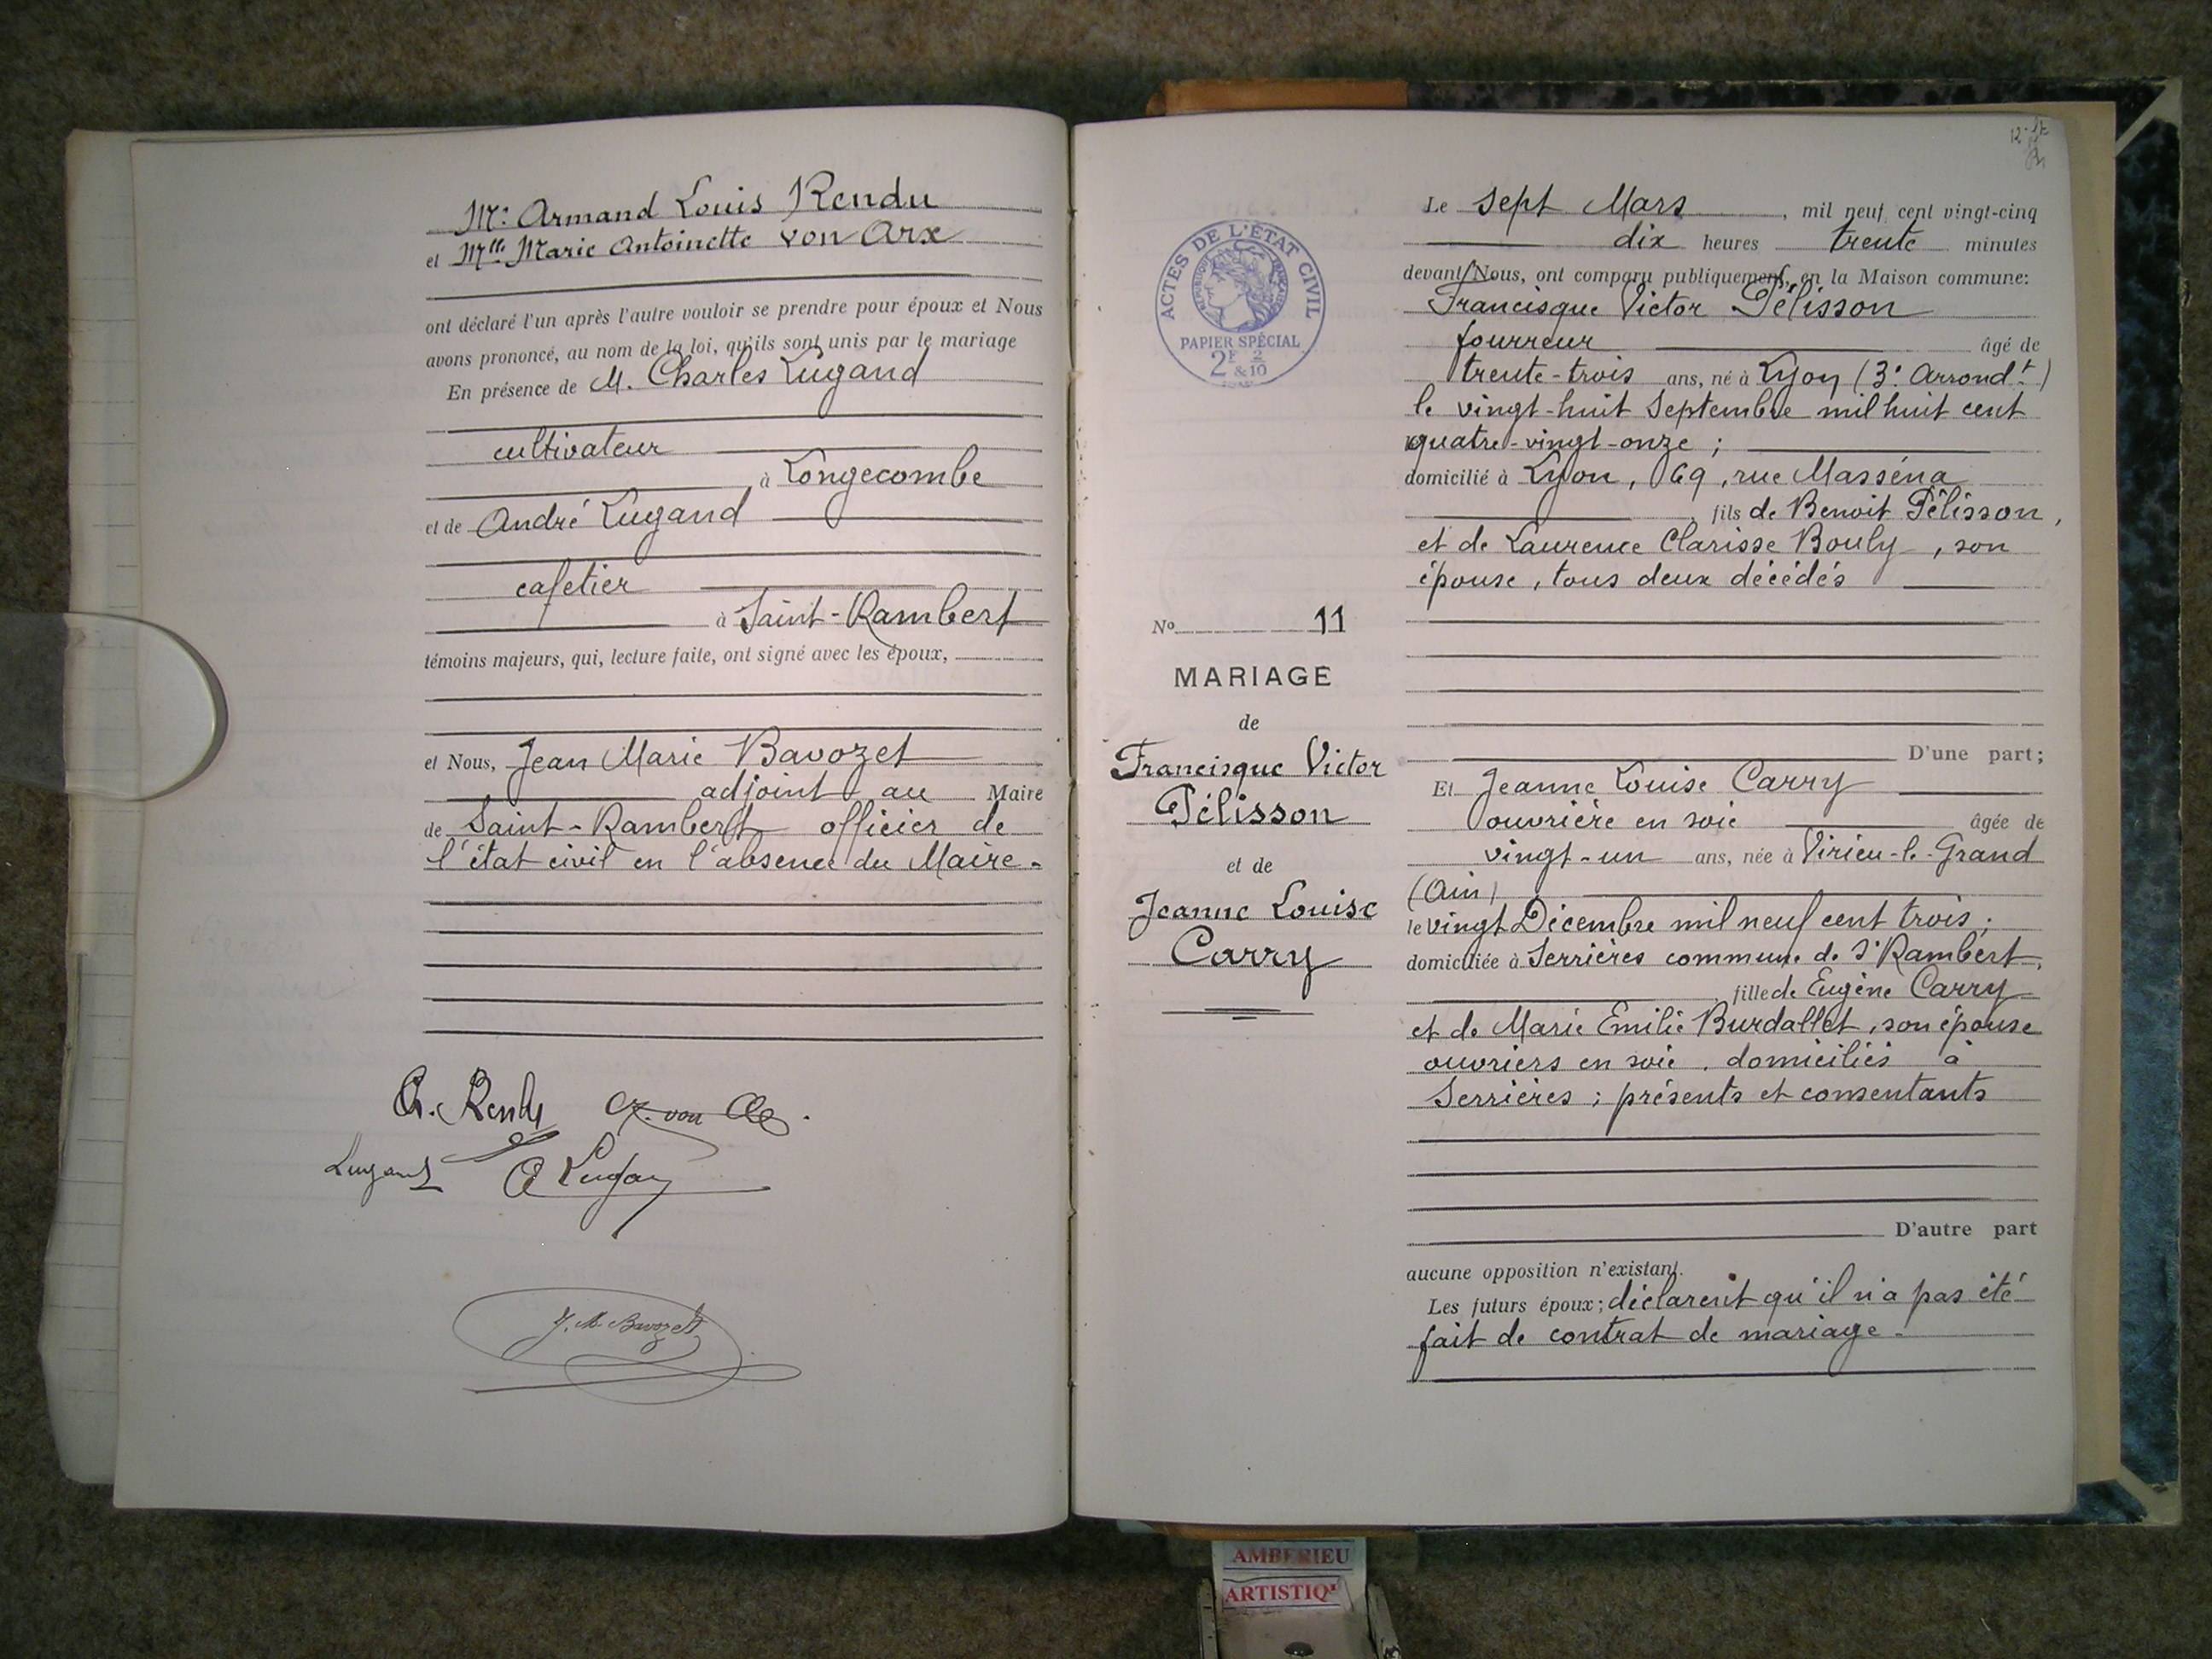 Mr. Armand Louis Rendu
et Mlle Marie Antoinette von Arx
ont déclaré l'un après l'autre vouloir se prendre pour époux et Nous
avons prononcé, au nom de la loi, qu'ils sont unis par le mariage
En présence de M. Charles Lugand
cultivateur
à Longecombe
et de André Lugand
cafetier
à Saint-Rambert
témoins majeurs, qui, lecture faite, ont signé avec les époux,
et Nous, Jean Marie Bavozet
adjoint au Maire
de Saint-Rambert officier de
l'état civil en l'absence du Maire.
A. Rendu
Lugand
J. M. Bavozet
ACTES DE L'ÉTAT CIVIL
PAPIER SPÉCIAL
2F 2
&10
No 11
MARIAGE
de
Francisque Victor
Pélisson
et de
Jeanne Louise
Carry
Le sept Mars, mil neuf cent vingt-cinq
dix heures trente minutes
devant Nous, ont comparu publiquement, en la Maison commune:
Francisque Victor Pélisson
fourreur âgé de
trente-trois ans, né à Lyon (3e Arrondt)
le vingt-huit Septembre mil huit cent
quatre-vingt-onze ;
domicilié à Lyon, 69, rue Masséna
fils de Benoit Pélisson,
et de Laurence Clarisse Bouly, son
épouse, tous deux décédés
D'une part;
Et Jeanne Louise Carry
ouvrière en soie âgée de
vingt-un ans, née à Virieu-le-Grand
(Ain)
le vingt Décembre mil neuf cent trois ;
domiciliée à Serrières commune de St Rambert,
fille de Eugène Carry
et de Marie Emilie Burdallet, son épouse
ouvriers en soie, domiciliés à
Serrières ; présents et consentants
D'autre part
aucune opposition n'existant.
Les futurs époux; déclarent qu'il n'a pas été
fait de contrat de mariage.
AMBERIEU
ARTISTIQ